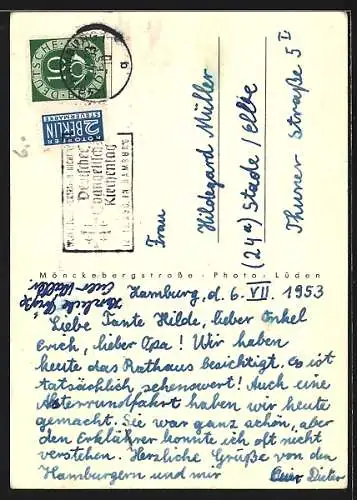 DEUTSCHE BUNDESPOST
10
NOTOPFER
2 BERLIN
STEUERMARKE
Deutscher
Evangelischer
Kirchentag
IN HAMBURG
6.-
Frau
Hildegard Müller
(24a) Stade/Elbe
Thuner Straße 5 I
Mönckebergstraße - Photo - Lüden
Herzliche Grüße
Euer Walter
Hamburg, d. 6. VII. 1953
Liebe Tante Hilde, lieber Onkel
Erich, lieber Opa! Wir haben
heute das Rathaus besichtigt, es ist
tatsächlich sehenswert! Auch eine
Alsterrundfahrt haben wir heute
gemacht. Sie war ganz schön, aber
den Erklärer konnte ich oft nicht
verstehen. Herzliche Grüße von den
Hamburgern und mir
Euer Dieter